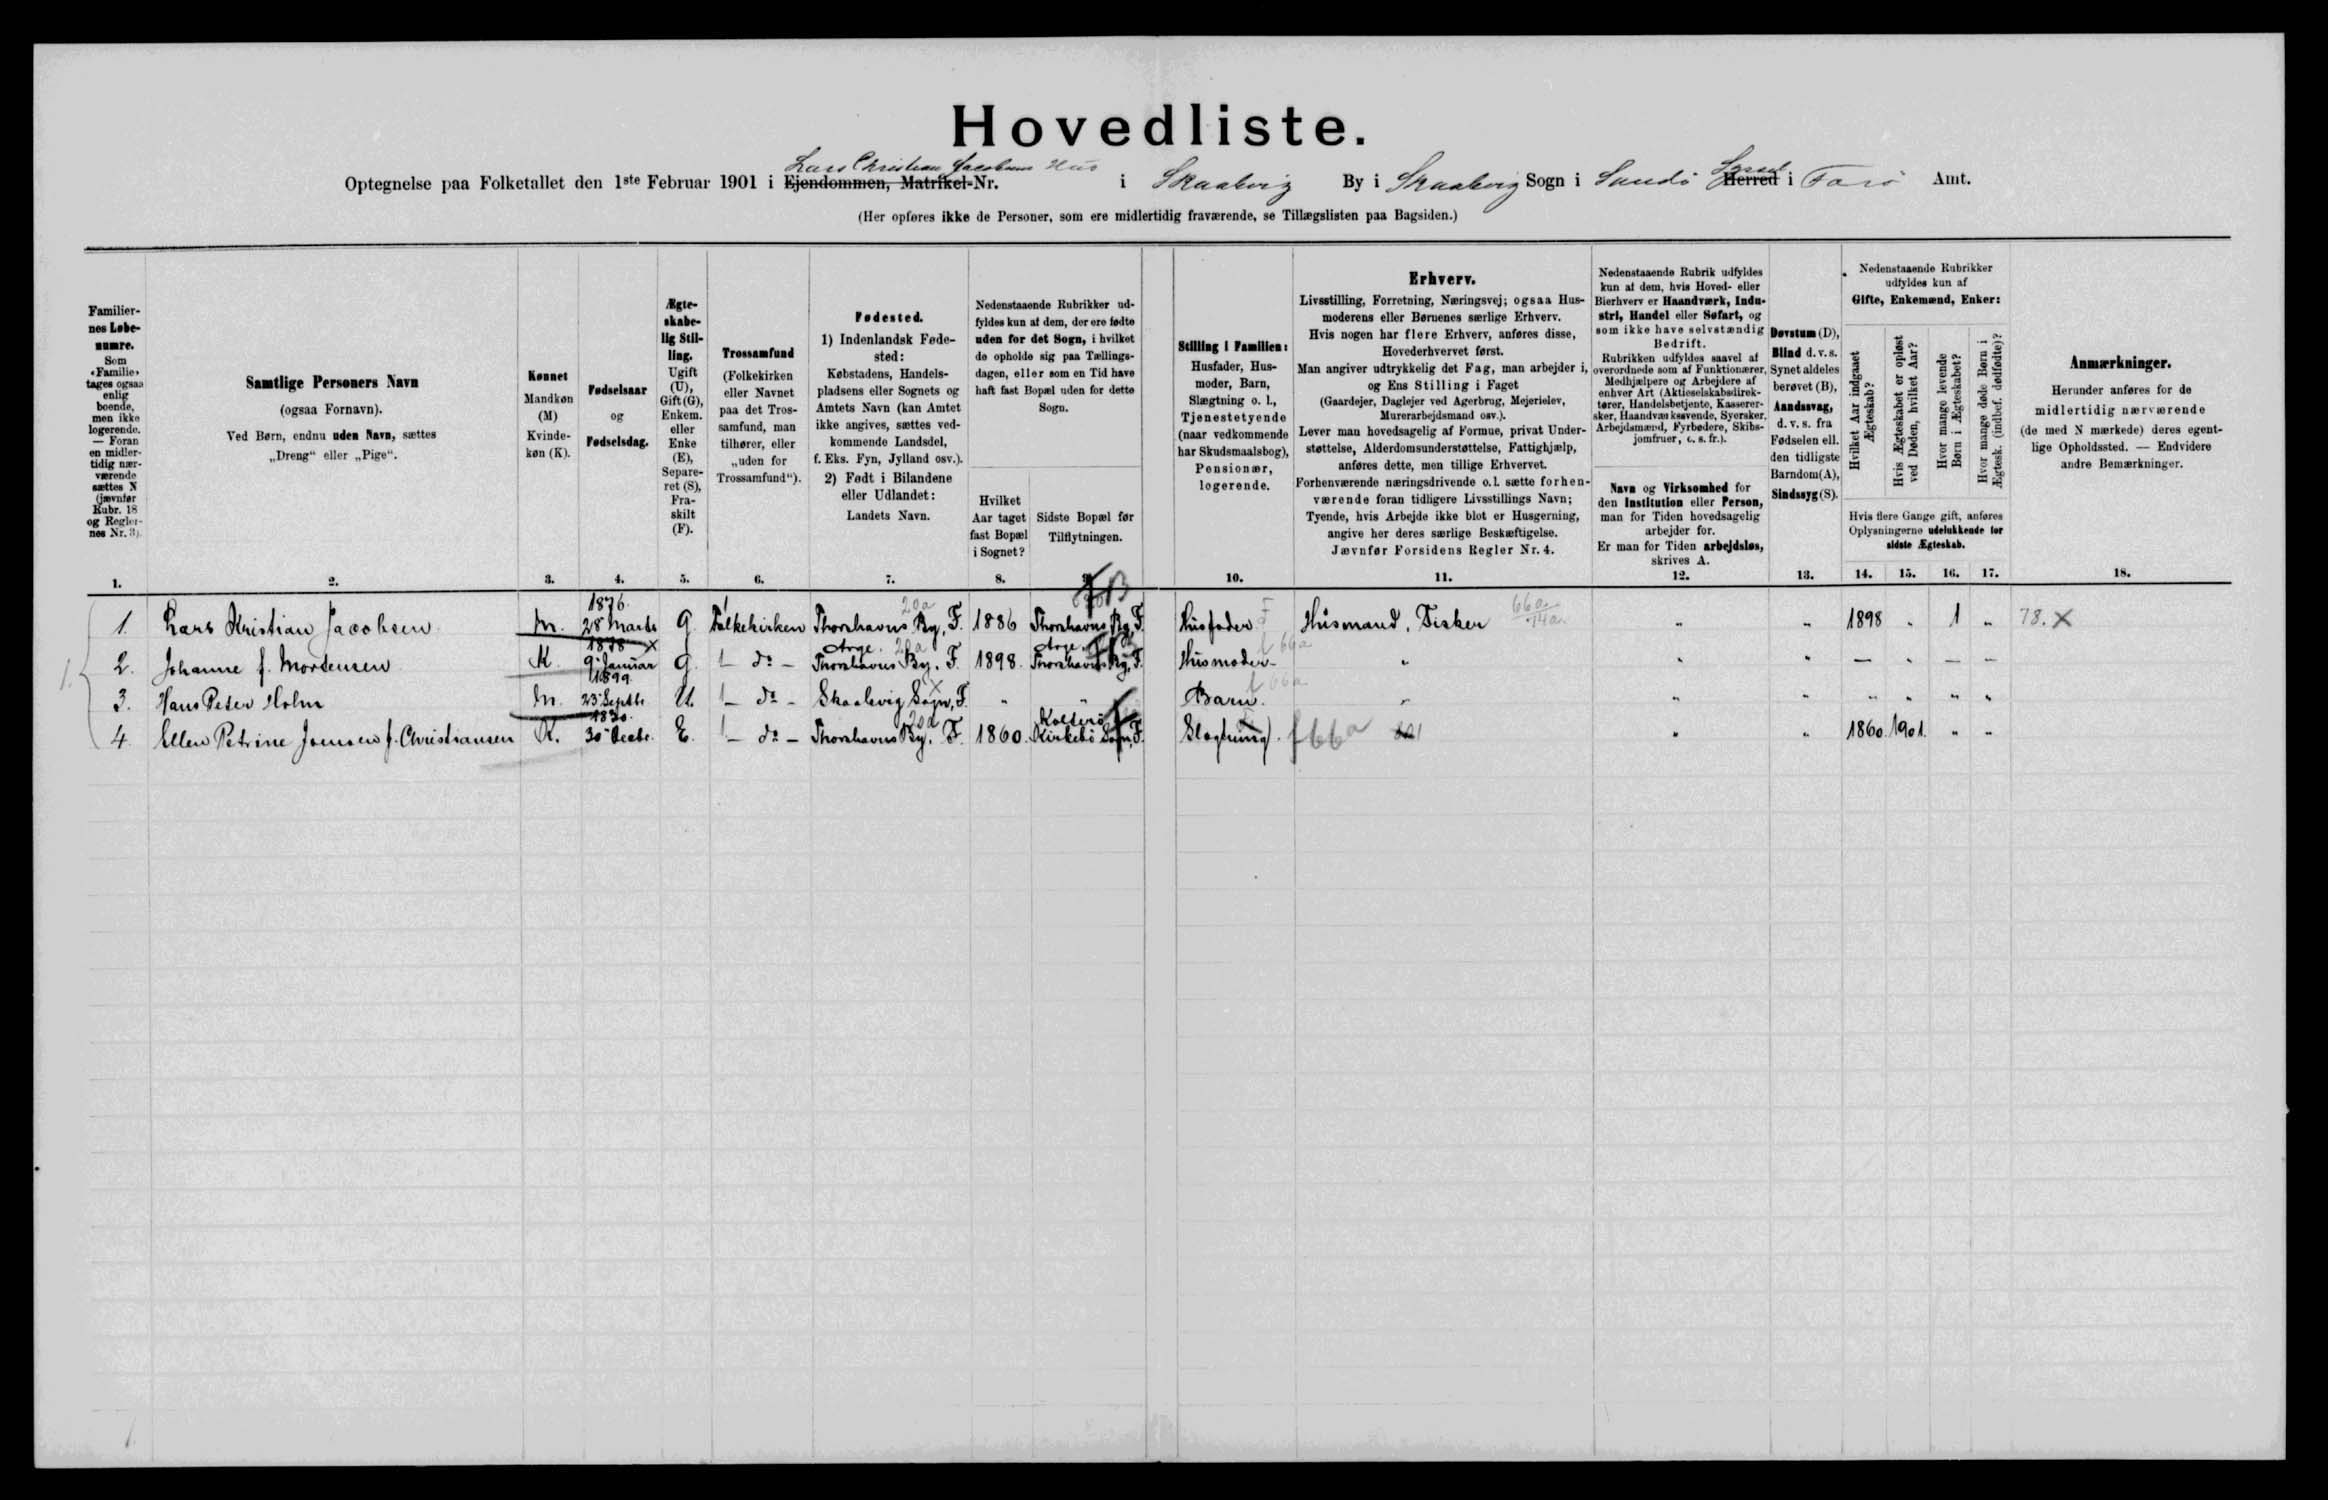 Hovedliste.
Lars Christian Jacobsens Hus
Optegnelse paa Folketallet den 1ste Februar 1901 i Ejendommen, Matrikel-Nr. i Skaalevig By i Skaalevig Sogn i Sandö Syssel Herred i Farö Amt.
(Her opføres ikke de Personer, som ere midlertidig fraværende, se Tillægslisten paa Bagsiden.)
Familier-
nes Løbe-
numre.
Som
«Familie»
tages ogsaa
enlig
boende,
men ikke
logerende.
— Foran
en midler-
tidig nær-
værende
sættes N
(jævnfør
Rubr. 18
og Regler-
nes Nr. 3).
1.
Samtlige Personers Navn
(ogsaa Fornavn).
Ved Børn, endnu uden Navn, sættes
„Dreng“ eller „Pige“.
2.
Kønnet
Mandkøn
(M)
Kvinde-
køn (K).
3.
Fødselsaar
og
Fødselsdag.
4.
Ægte-
skabe-
lig Stil-
ling.
Ugift
(U),
Gift (G),
Enkem.
eller
Enke
(E),
Separe-
ret (S),
Fra-
skilt
(F).
5.
Trossamfund
(Folkekirken
eller Navnet
paa det Tros-
samfund, man
tilhører, eller
„uden for
Trossamfund“).
6.
Fødested.
1) Indenlandsk Føde-
sted:
Købstadens, Handels-
pladsens eller Sognets og
Amtets Navn (kan Amtet
ikke angives, sættes ved-
kommende Landsdel,
f. Eks. Fyn, Jylland osv.).
2) Født i Bilandene
eller Udlandet:
Landets Navn.
7.
Nedenstaaende Rubrikker ud-
fyldes kun af dem, der ere fødte
uden for det Sogn, i hvilket
de opholde sig paa Tællings-
dagen, eller som en Tid have
haft fast Bopæl uden for dette
Sogn.
Hvilket
Aar taget
fast Bopæl
i Sognet?
8.
Sidste Bopæl før
Tilflytningen.
9.
Stilling i Familien:
Husfader, Hus-
moder, Barn,
Slægtning o. l.,
Tjenestetyende
(naar vedkommende
har Skudsmaalsbog),
Pensionær,
logerende.
10.
Erhverv.
Livsstilling, Forretning, Næringsvej; ogsaa Hus-
moderens eller Børnenes særlige Erhverv.
Hvis nogen har flere Erhverv, anføres disse,
Hovederhvervet først.
Man angiver udtrykkelig det Fag, man arbejder i,
og Ens Stilling i Faget
(Gaardejer, Daglejer ved Agerbrug, Mejerielev,
Murerarbejdsmand osv.).
Lever man hovedsagelig af Formue, privat Under-
støttelse, Alderdomsunderstøttelse, Fattighjælp,
anføres dette, men tillige Erhvervet.
Forhenværende næringsdrivende o.l. sætte forhen-
værende foran tidligere Livsstillings Navn;
Tyende, hvis Arbejde ikke blot er Husgerning,
angive her deres særlige Beskæftigelse.
Jævnfør Forsidens Regler Nr. 4.
11.
Nedenstaaende Rubrik udfyldes
kun af dem, hvis Hoved- eller
Bierhverv er Haandværk, Indu-
stri, Handel eller Søfart, og
som ikke have selvstændig
Bedrift.
Rubrikken udfyldes saavel af
overordnede som af Funktionærer,
Medhjælpere og Arbejdere af
enhver Art (Aktieselskabsdirek-
tører, Handelsbetjente, Kasserer-
sker, Haandværkssvende, Syersker,
Arbejdsmænd, Fyrbødere, Skibs-
jomfruer, o. s. fr.).
Navn og Virksomhed for
den Institution eller Person,
man for Tiden hovedsagelig
arbejder for.
Er man for Tiden arbejdsløs,
skrives A.
12.
Døvstum (D),
Blind d. v. s.
Synet aldeles
berøvet (B),
Aandssvag,
d. v. s. fra
Fødselen ell.
den tidligste
Barndom (A),
Sindssyg (S).
13.
Nedenstaaende Rubrikker
udfyldes kun af
Gifte, Enkemænd, Enker:
Hvilket Aar indgaaet
Ægteskab?
Hvis Ægteskabet er opløst
ved Døden, hvilket Aar?
Hvor mange levende
Børn i Ægteskabet?
Hvor mange døde Børn i
Ægtesk. (indbef. dødfødte)?
Hvis flere Gange gift, anføres
Oplysningerne udelukkende for
sidste Ægteskab.
14. 15. 16. 17.
Anmærkninger.
Herunder anføres for de
midlertidig nærværende
(de med N mærkede) deres egent-
lige Opholdssted. — Endvidere
andre Bemærkninger.
18.
1. Lars Kristian Jacobsen M. 1876. 28 Marts G Folkekirken Thorshavns By, F. 20a 1886 Thorshavns By, F. Husfader F Husmand, Fisker 66a 14a „ „ 1898 „ 1 „ 78. X
2. Johanne f. Mortensen K. 1878 X 9 Januar G. – do – Arge. Thorshavns By. F. 20a 1898. Arge. Thorshavns By, F. Husmoder f 66a „ „ „ – „ – –
3. Hans Peter Holm M. 1899 23 Septb. U. – do – Skaalevig Sogn, F. X „ „ Barn. f 66a „ „ „ „ „ „ „
4. Ellen Petrine Joensen f. Christiansen K. 1830. 30 Decbr. E. – do – Thorshavns By. F. 20a 1860. Kolterö Kirkebö Sogn, F. Slægtning. f 66a 801 „ „ 1860. 1901. „ „
1.